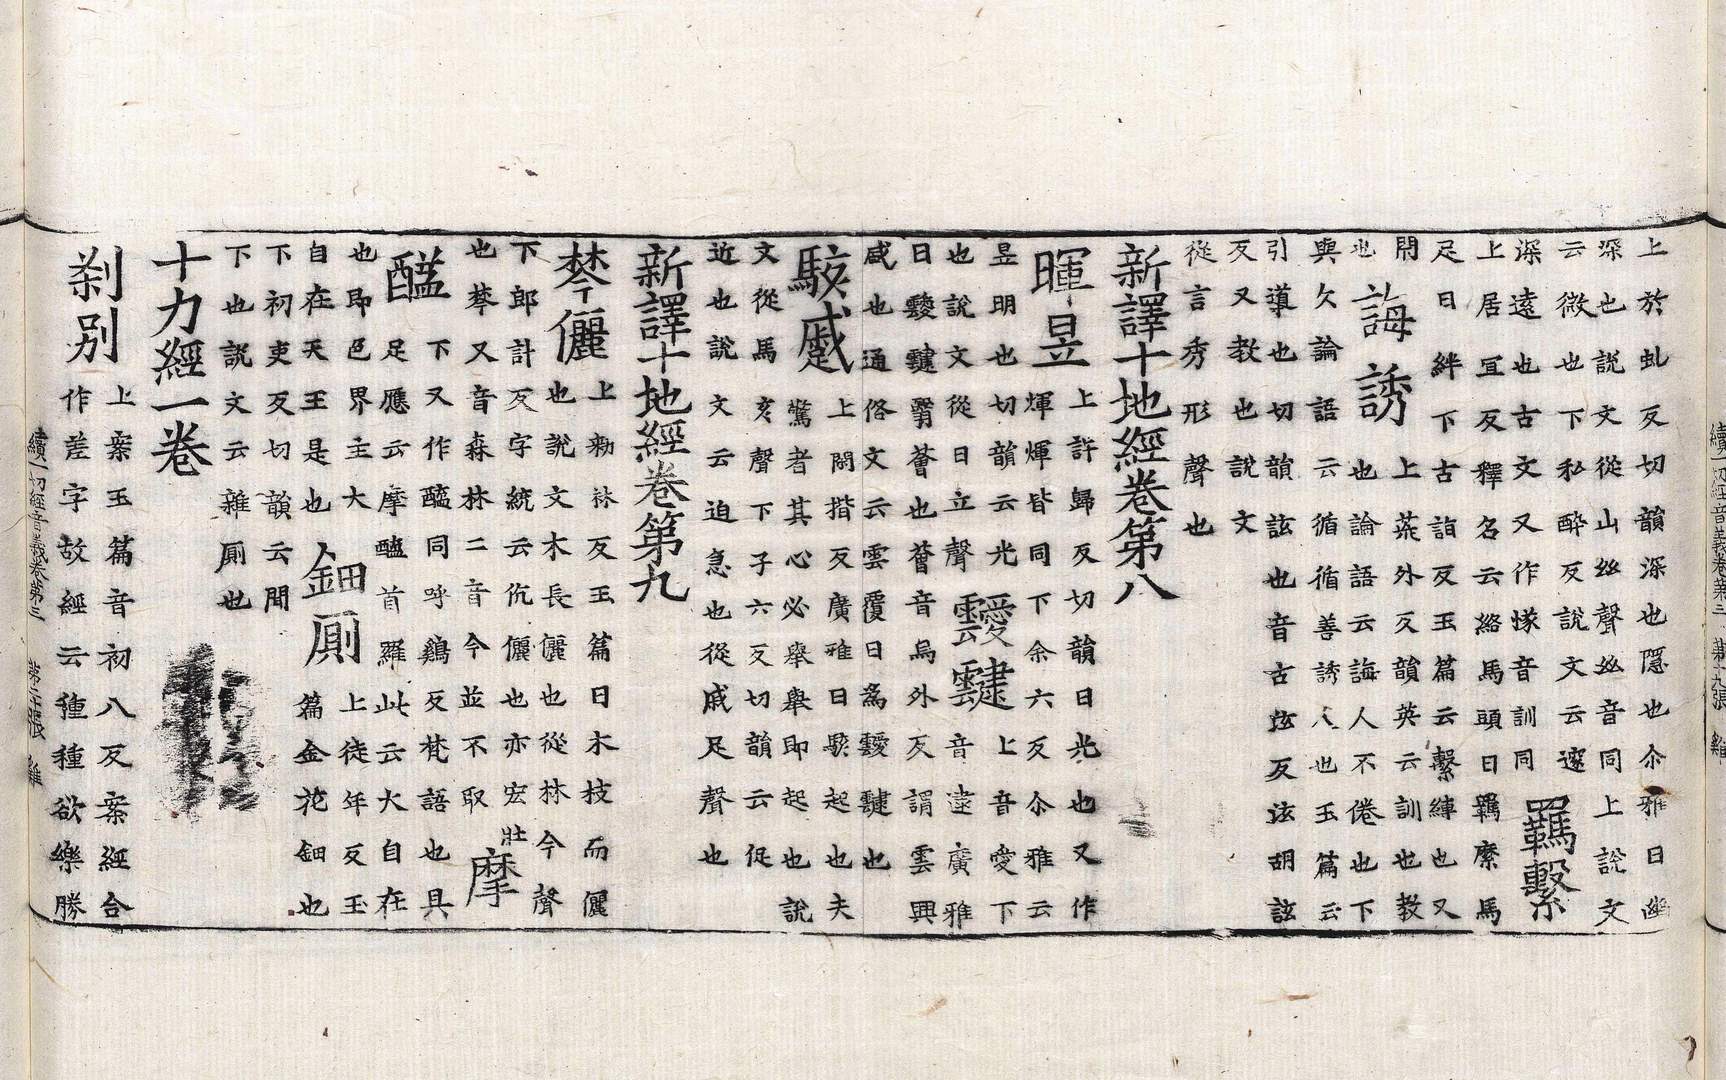 續一切經音義卷第三 第十九張 雞
上於虬反切韻深也隱也尒雅曰幽
深也說文從山𢆶聲𢆶音同上說文
云微也下私醉反說文云邃
深遠也古文又作㥞音訓同
羈繫
上居冝反釋名云絡馬頭曰羈縻馬
足曰絆下古詣反玉篇云繫縛也又
閇
也
誨誘
上荒外反韻英云訓也教
也論語云誨人不倦也下
與久論語云循循善誘人也玉篇云
引導也切韻詃也音古泫反泫胡詃
反又教也說文
從言秀形聲也
新譯十地經卷第八
暉昱
上許歸反切韻曰光也又作
煇煇皆同下余六反尒雅云
昱明也切韻云光
也說文從日立聲
靉靆
上音愛下
音逮廣雅
曰靉靆翳薈也薈音烏外反謂雲興
盛也通俗文云雲覆日為靉靆也
駭蹙
上閑揩反廣雅曰駭起也夫
驚者其心必舉舉即起也說
文從馬亥聲下子六反切韻云促
近也說文云迫急也從戚足聲也
新譯十地經卷第九
棽儷
上勑林反玉篇曰木枝而儷
也說文木長儷也從林今聲
下郎計反字統云伉儷也亦宏壯
也棽又音森林二音今並不取
摩醯
下又作醯同呼鷄反梵語也具
足應云摩醯首羅此云大自在
也即色界主大
自在天王是也
鈿厠
上徒年反玉
篇金花鈿也
下初吏反切韻云間
下也說文云雜厠也
十力經一卷
剎別
上案玉篇音初八反案經合
作差字故經云種種欲樂勝
續一切經音義卷第三 第二十張 雞